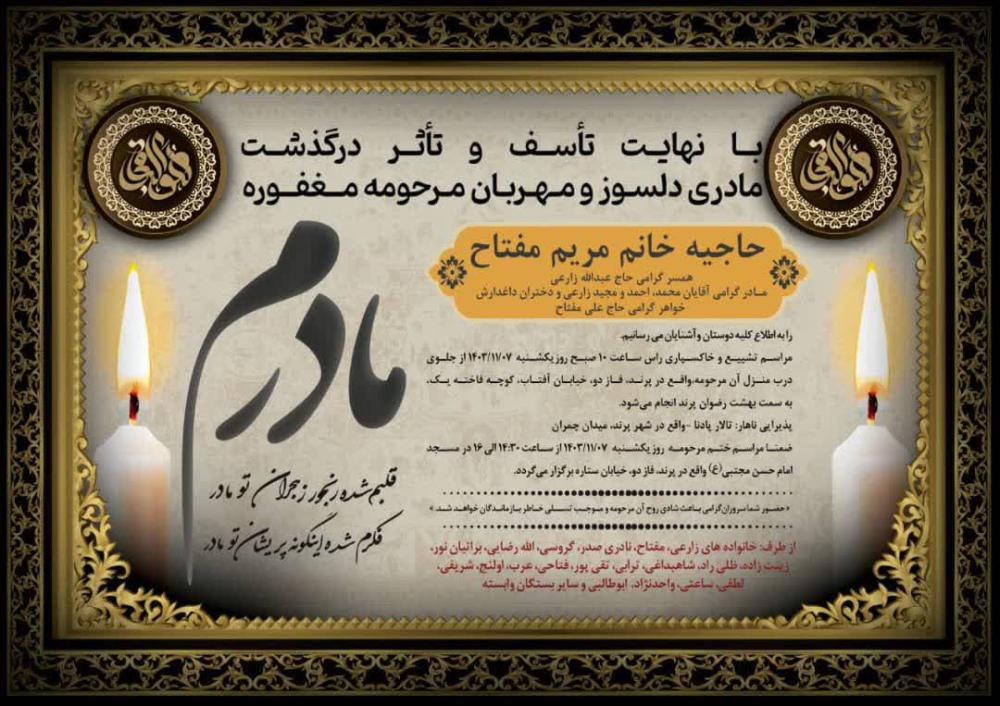 هوالباقی
هوالباقی
با نهایت تأسف و تأثر درگذشت
مادری دلسوز و مهربان مرحومه مغفوره
حاجیه خانم مریم مفتاح
همسر گرامی حاج عبدالله زارعی
مادر گرامی آقایان محمد، احمد و مجید زارعی و دختران داغدارش
خواهر گرامی حاج علی مفتاح
را به اطلاع کلیه دوستان و آشنایان می رسانیم.
مراسم تشییع و خاکسپاری راس ساعت ۱۰ صبح روز یکشنبه ۱۴۰۳/۱۱/۰۷ از جلوی
درب منزل آن مرحومه،واقع در پرند، فاز دو، خیابان آفتاب، کوچه فاخته یک،
به سمت بهشت رضوان پرند انجام می‌شود.
پذیرایی ناهار: تالار پادنا -واقع در شهر پرند، میدان چمران
ضمنا مراسم ختم مرحومه روز یکشنبه ۱۴۰۳/۱۱/۰۷ از ساعت ۱۴:۳۰ الی ۱۶ در مسجد
امام حسن مجتبی(ع) واقع در پرند، فاز دو، خیابان ستاره برگزار می‌گردد.
«حضور شما سروران گرامی باعث شادی روح آن مرحومه و موجب تسلی خاطر بازماندگان خواهد شد.»
از طرف: خانواده های زارعی، مفتاح، نادری صدر، گروسی، الله رضایی، براتیان نور،
زینت زاده، ظلی راد، شاهبداغی، ترابی، تقی پور، فتاحی، عرب، اولنج، شریفی،
لطفی، ساعتی، واحدنژاد، ابوطالبی و سایر بستگان وابسته
مادرم
قلبم شده رنجور ز هجران تو مادر
فکرم شده اینگونه پریشان تو مادر